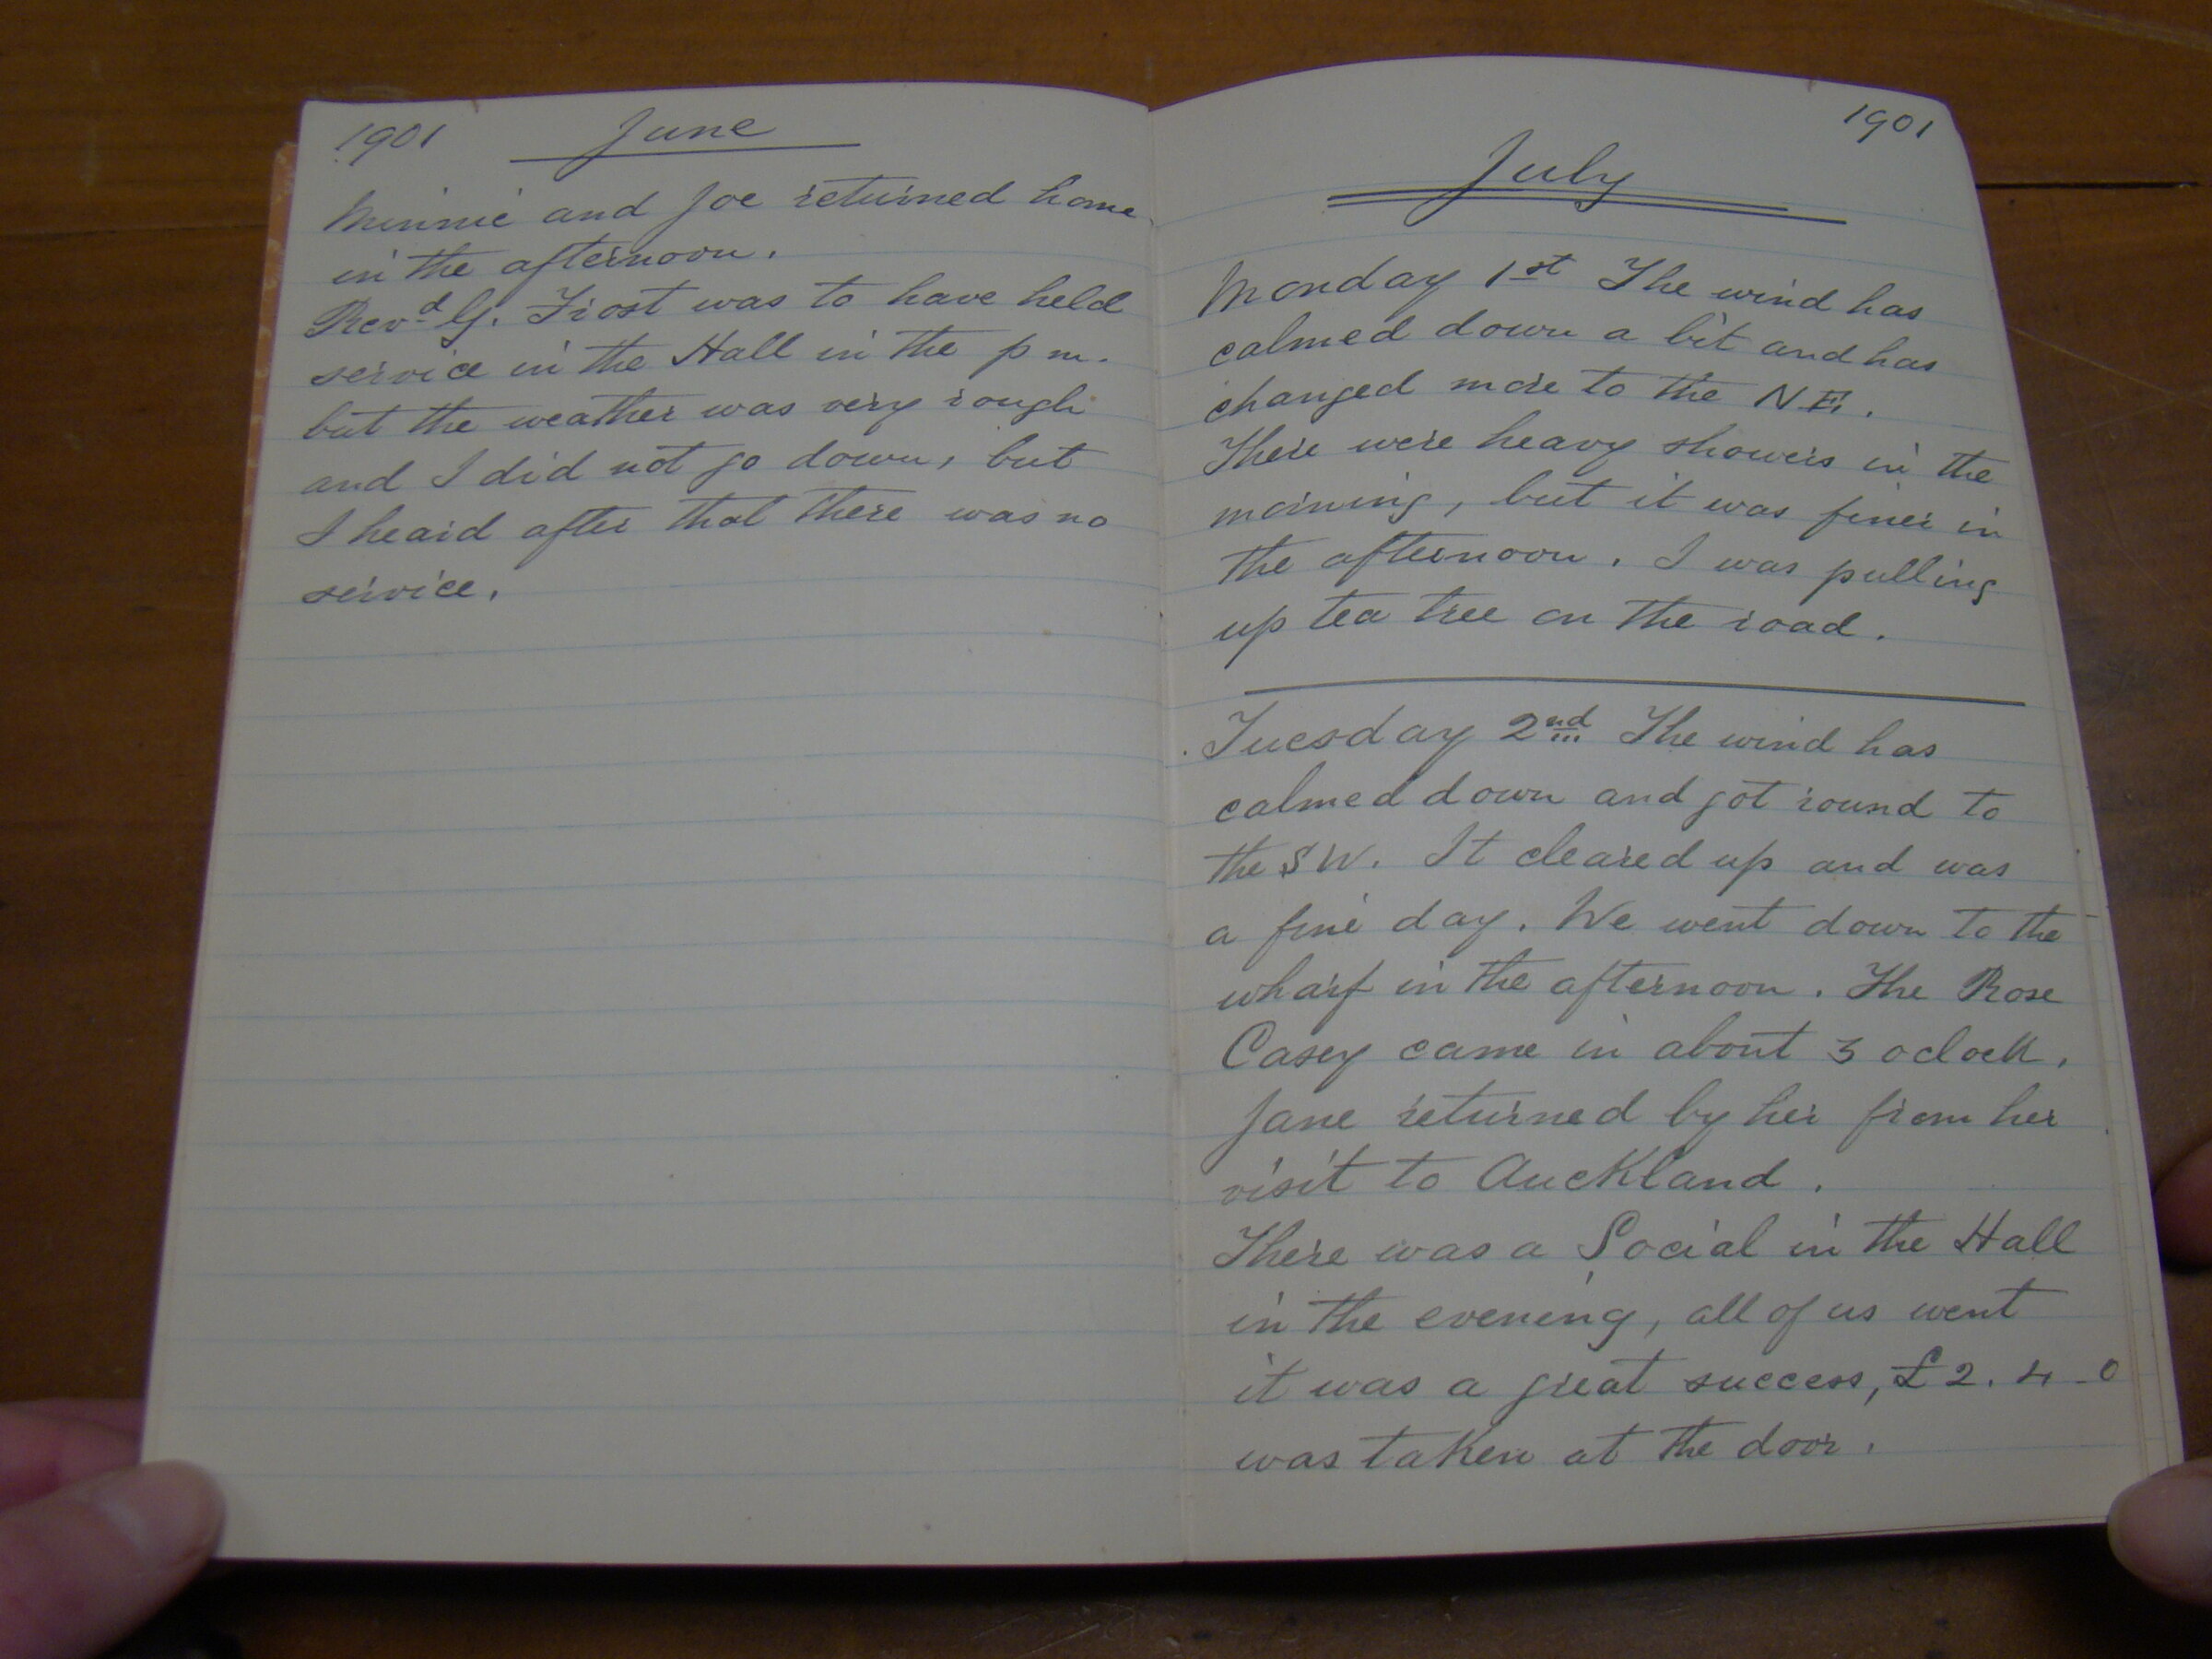 1901 June
Minnie and Joe returned home
in the afternoon.
Revd G. Frost was to have held
service in the Hall in the p m.
but the weather was very rough
and I did not go down, but
I heard after that there was no
service.
1901
July
Monday 1st The wind has
calmed down a bit and has
changed more to the NE.
There were heavy showers in the
morning, but it was finer in
the afternoon. I was pulling
up tea tree on the road.
Tuesday 2nd The wind has
calmed down and got round to
the SW. It cleared up and was
a fine day. We went down to the
wharf in the afternoon. The Rose
Casey came in about 3 oclock.
Jane returned by her from her
visit to Auckland.
There was a Social in the Hall
in the evening, all of us went
it was a great success, £2. 4 - 0
was taken at the door.